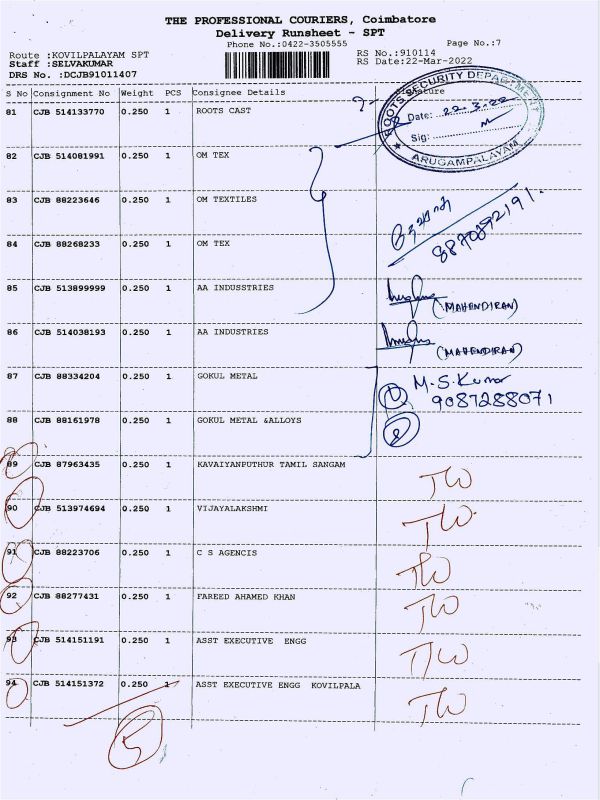 THE PROFESSIONAL COURIERS, Coimbatore
Delivery Runsheet - SPT
Phone No.:0422-3505555
Page No.:7
Route :KOVILPALAYAM SPT
RS No.:910114
Staff :SELVAKUMAR
RS Date:22-Mar-2022
DRS No. :DCJB91011407
S No Consignment No Weight PCS Consignee Details Signature
81 CJB 514133770 0.250 1 ROOTS CAST
ROOTS SECURITY DEPARTMENT
Date: 22.3.22
Sig:
ARUGAMPALAYAM
82 CJB 514081991 0.250 1 OM TEX
83 CJB 88223646 0.250 1 OM TEXTILES
8870892191.
84 CJB 88268233 0.250 1 OM TEX
85 CJB 513899999 0.250 1 AA INDUSSTRIES
(MAHENDIRAN)
86 CJB 514038193 0.250 1 AA INDUSTRIES
(MAHENDIRAN)
87 CJB 88334204 0.250 1 GOKUL METAL
M.S.Kumar
9087288071
88 CJB 88161978 0.250 1 GOKUL METAL &ALLOYS
8
89 CJB 87963435 0.250 1 KAVAIYANPUTHUR TAMIL SANGAM
TW
90 CJB 513974694 0.250 1 VIJAYALAKSHMI
TW.
91 CJB 88223706 0.250 1 C S AGENCIS
TW
92 CJB 88277431 0.250 1 FAREED AHAMED KHAN
TW
93 CJB 514151191 0.250 1 ASST EXECUTIVE ENGG
TW
94 CJB 514151372 0.250 1 ASST EXECUTIVE ENGG KOVILPALA
TW
5